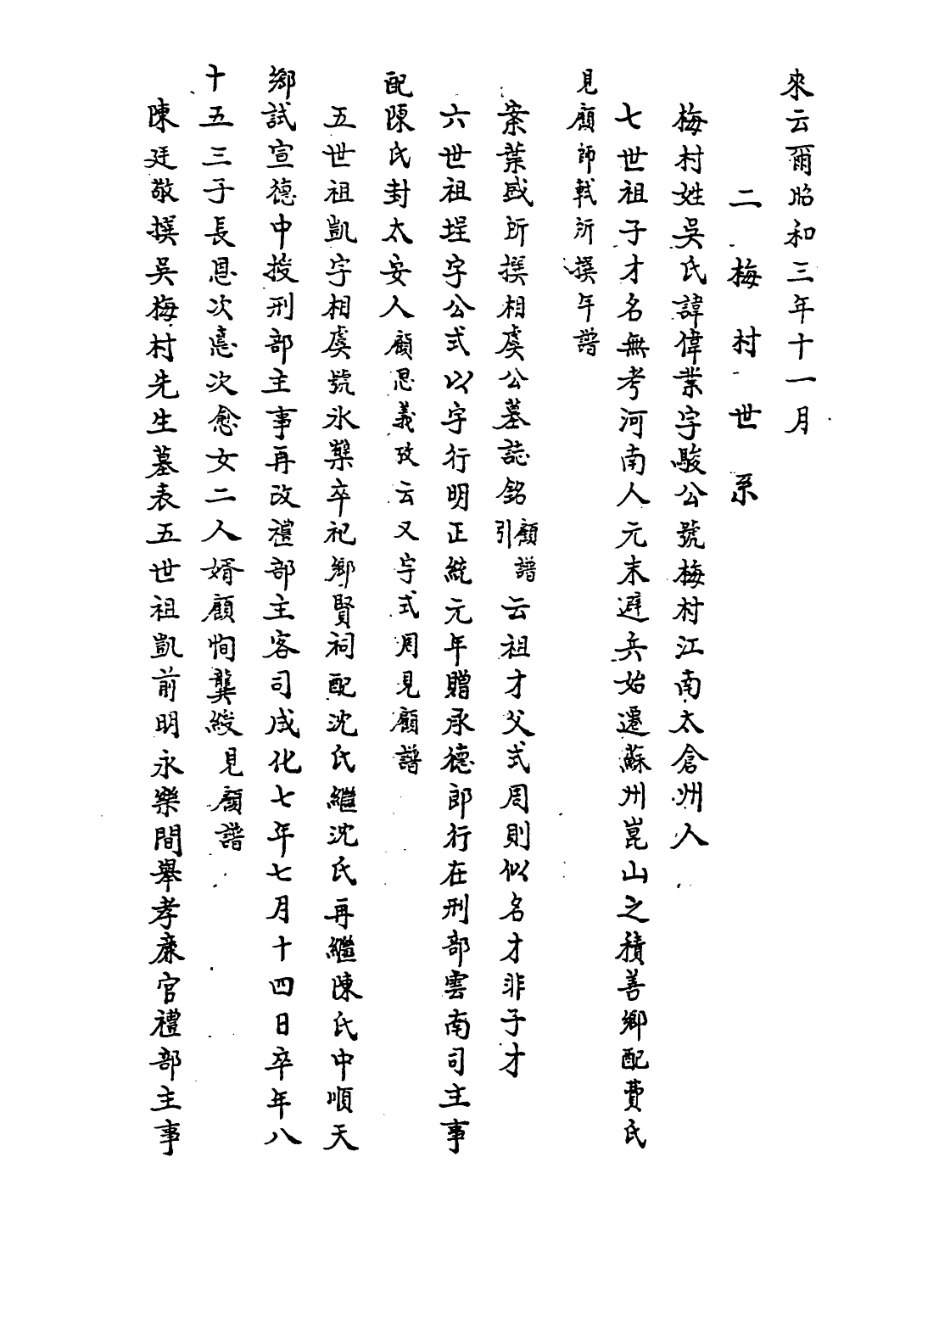 來云爾昭和三年十一月
二梅村世系
梅村姓吳氏諱偉業字駿公號梅村江南太倉州人
七世祖子才名無考河南人元末避兵始遷蘇州崑山之積善鄉配費氏
見顧師軾所撰年譜
案葉盛所撰相虞公墓誌銘顧譜引云祖才父式周則似名才非子才
六世祖埕字公式以字行明正統元年贈承德郎行在刑部雲南司主事
配陳氏封太安人顧思義攷云又字式周見顧譜
五世祖凱字相虞號冰櫱卒祀鄉賢祠配沈氏繼沈氏再繼陳氏中順天
鄉試宣德中授刑部主事再改禮部主客司成化七年七月十四日卒年八
十五三子長恩次憙次愈女二人婿顧恂龔綬見顧譜
陳廷敬撰吳梅村先生墓表五世祖凱前明永樂間舉孝廉官禮部主事